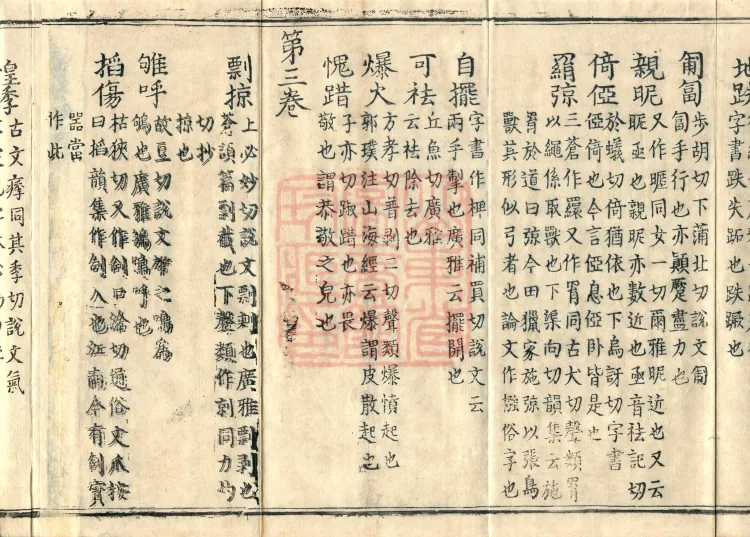 地趺字書跌失跖也跌蹶也
匍匐步胡切下蒲北切說文匍
匐手行也亦顛蹷盡力也
親昵又作暱同女一切爾雅昵近也又云
昵亟也親昵亦數近也亟音袪記切
倚俹於蟻切倚猶依也下烏訝切字書
俹倚也今言俹息俹臥皆是也
羂弶三蒼作繯又作罥同古犬切聲類罥
以繩係取獸也下渠向切韻集云施
罥於道曰弶今田獵家施弶以張鳥
獸其形似弓者也論文作摾俗字也
自擺字書作捭同補買切說文云
兩手擊也廣雅云擺開也
可袪丘魚切廣雅
云袪除去也
爆火方孝切普剥二切聲類爆憤起也
郭璞注山海經云爆謂皮散起也
愧踖子亦切踧踖也亦畏
敬也謂恭敬之皃也
第三卷
剽掠上必妙切說文剽刺也廣雅剽剥也
蒼頡篇剽截也下聲類作剠同力
切抄
掠也
雊呼故豆切說文雄之鳴為
雊也廣雅雊鳴呼也
搯傷枯狹切又作㓣口洽切通俗文爪按
曰搯韻集作㓣入也江南今有㓣
器當
作此
皇季古文痵同其季切說文氣